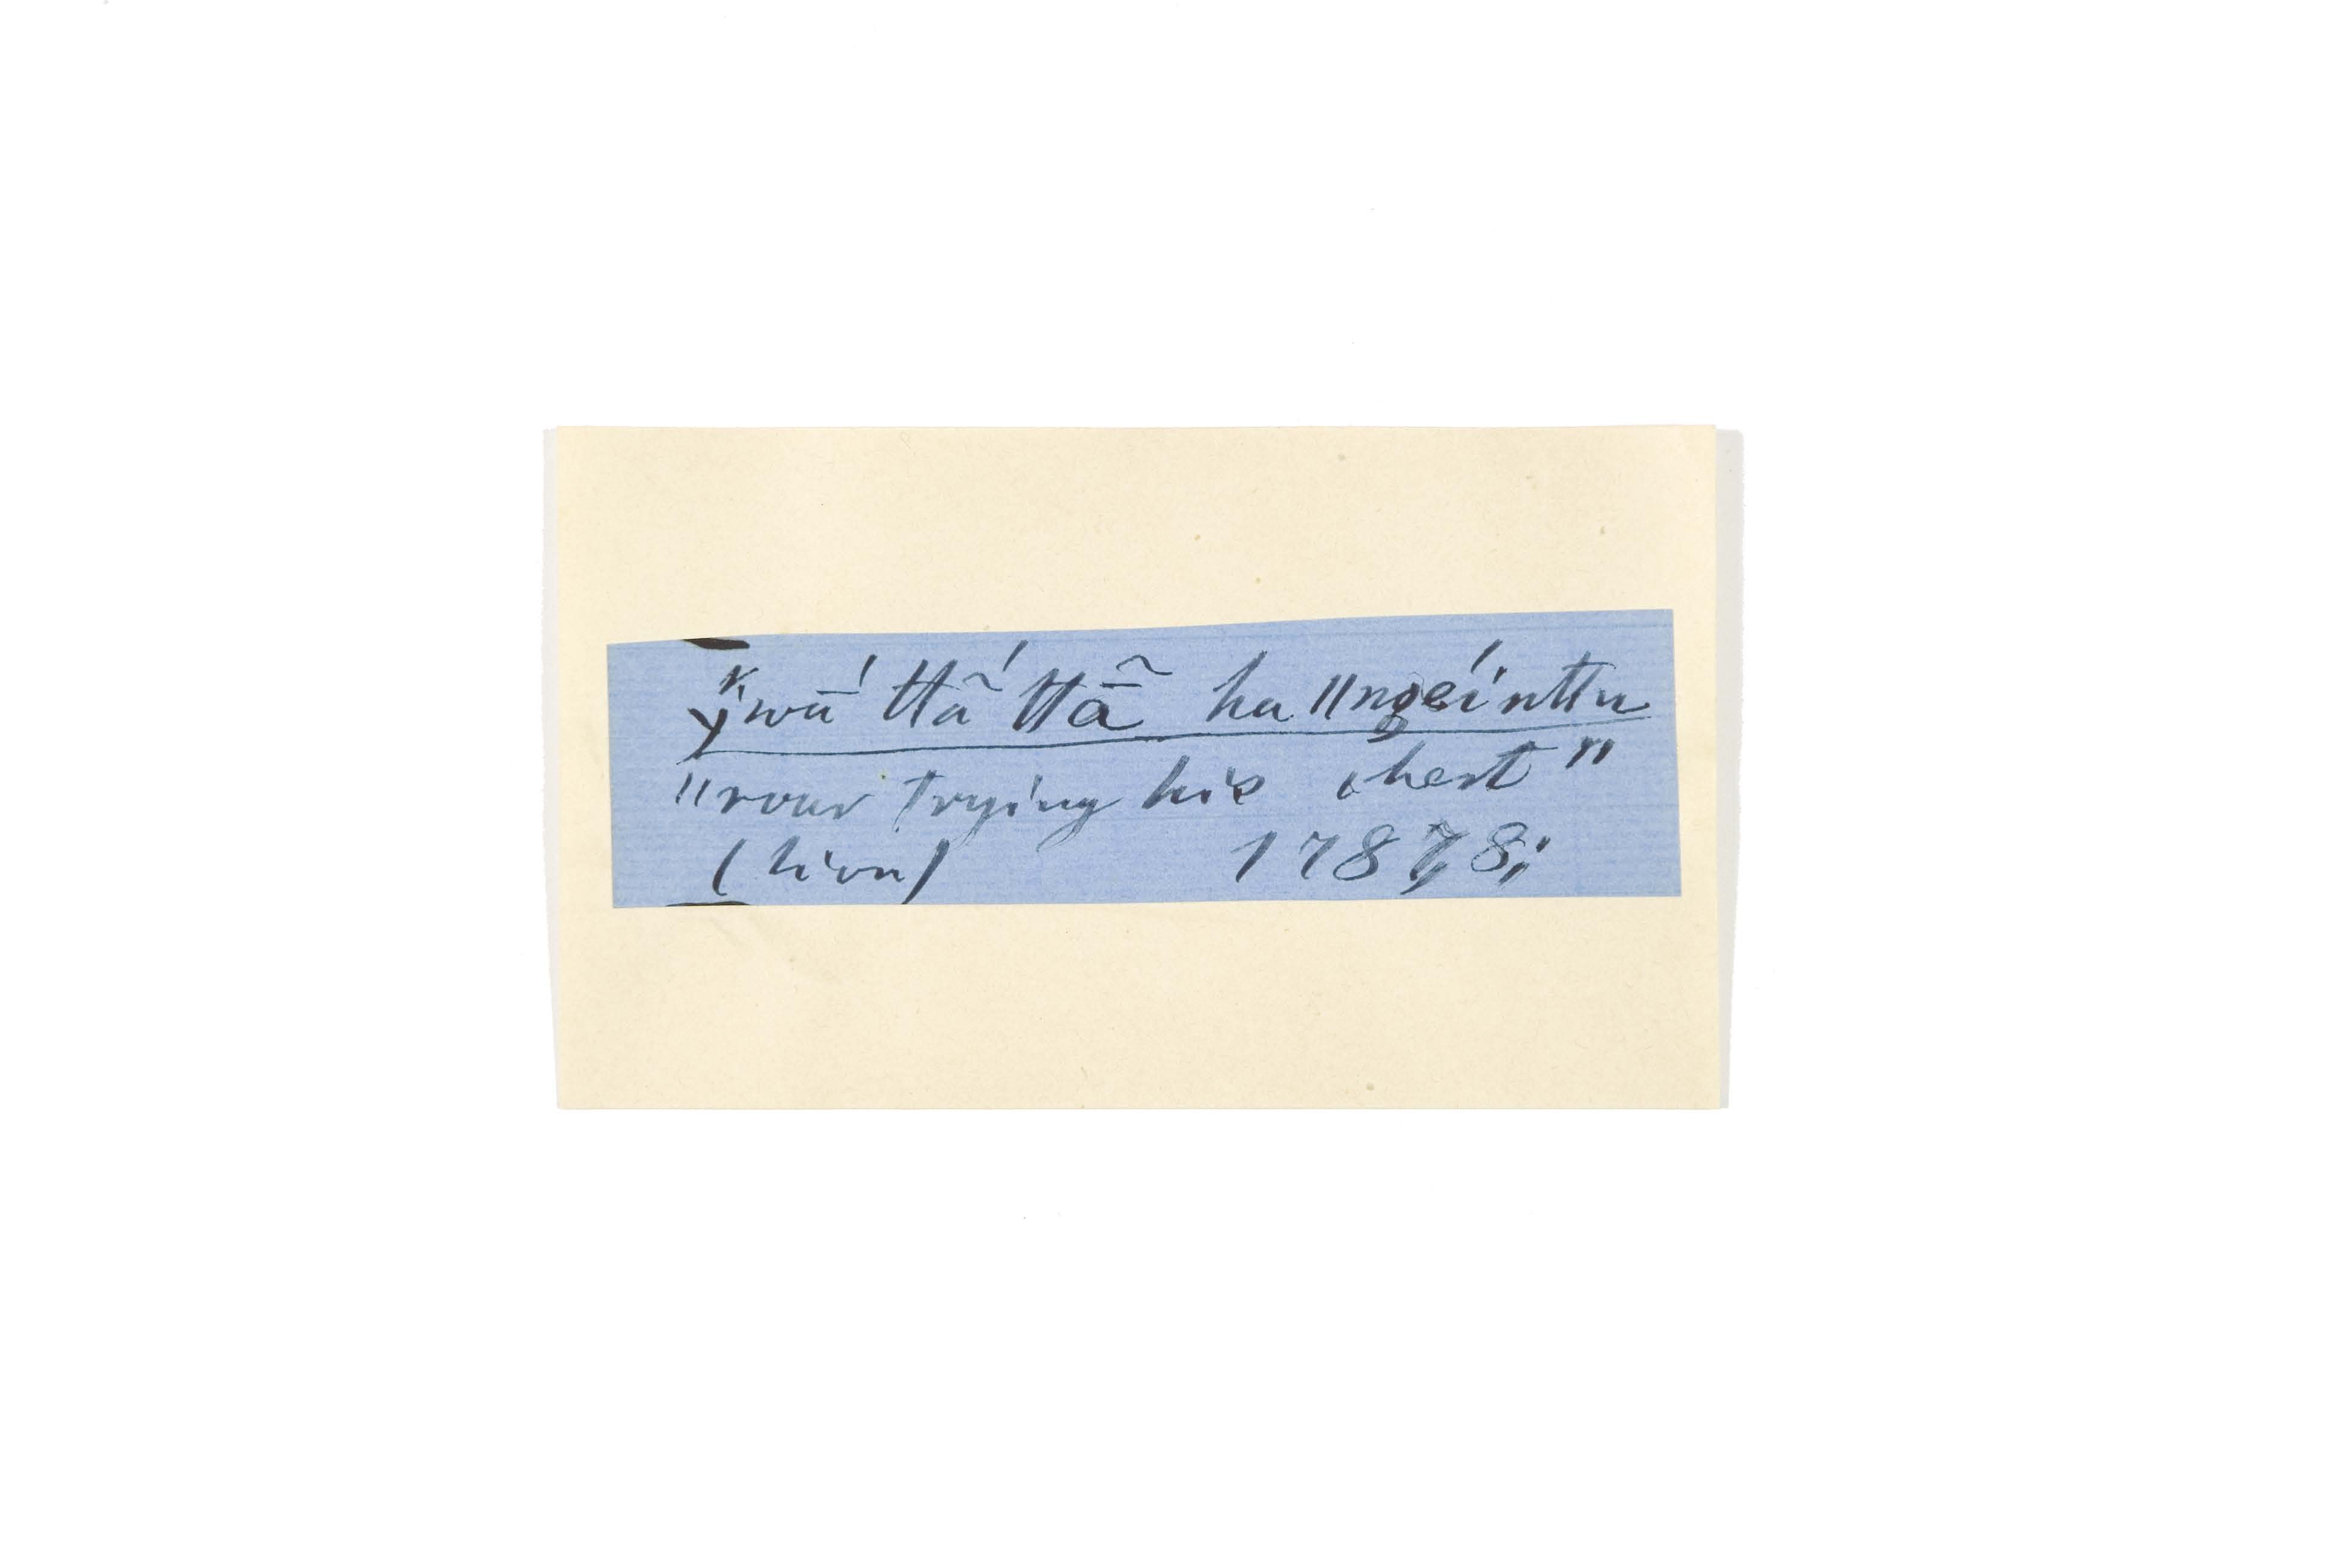 ẏwā́ ttã́ ttā̃ ha ||ngéínttu
"roar trying his chest"
(lion) 1787,8;